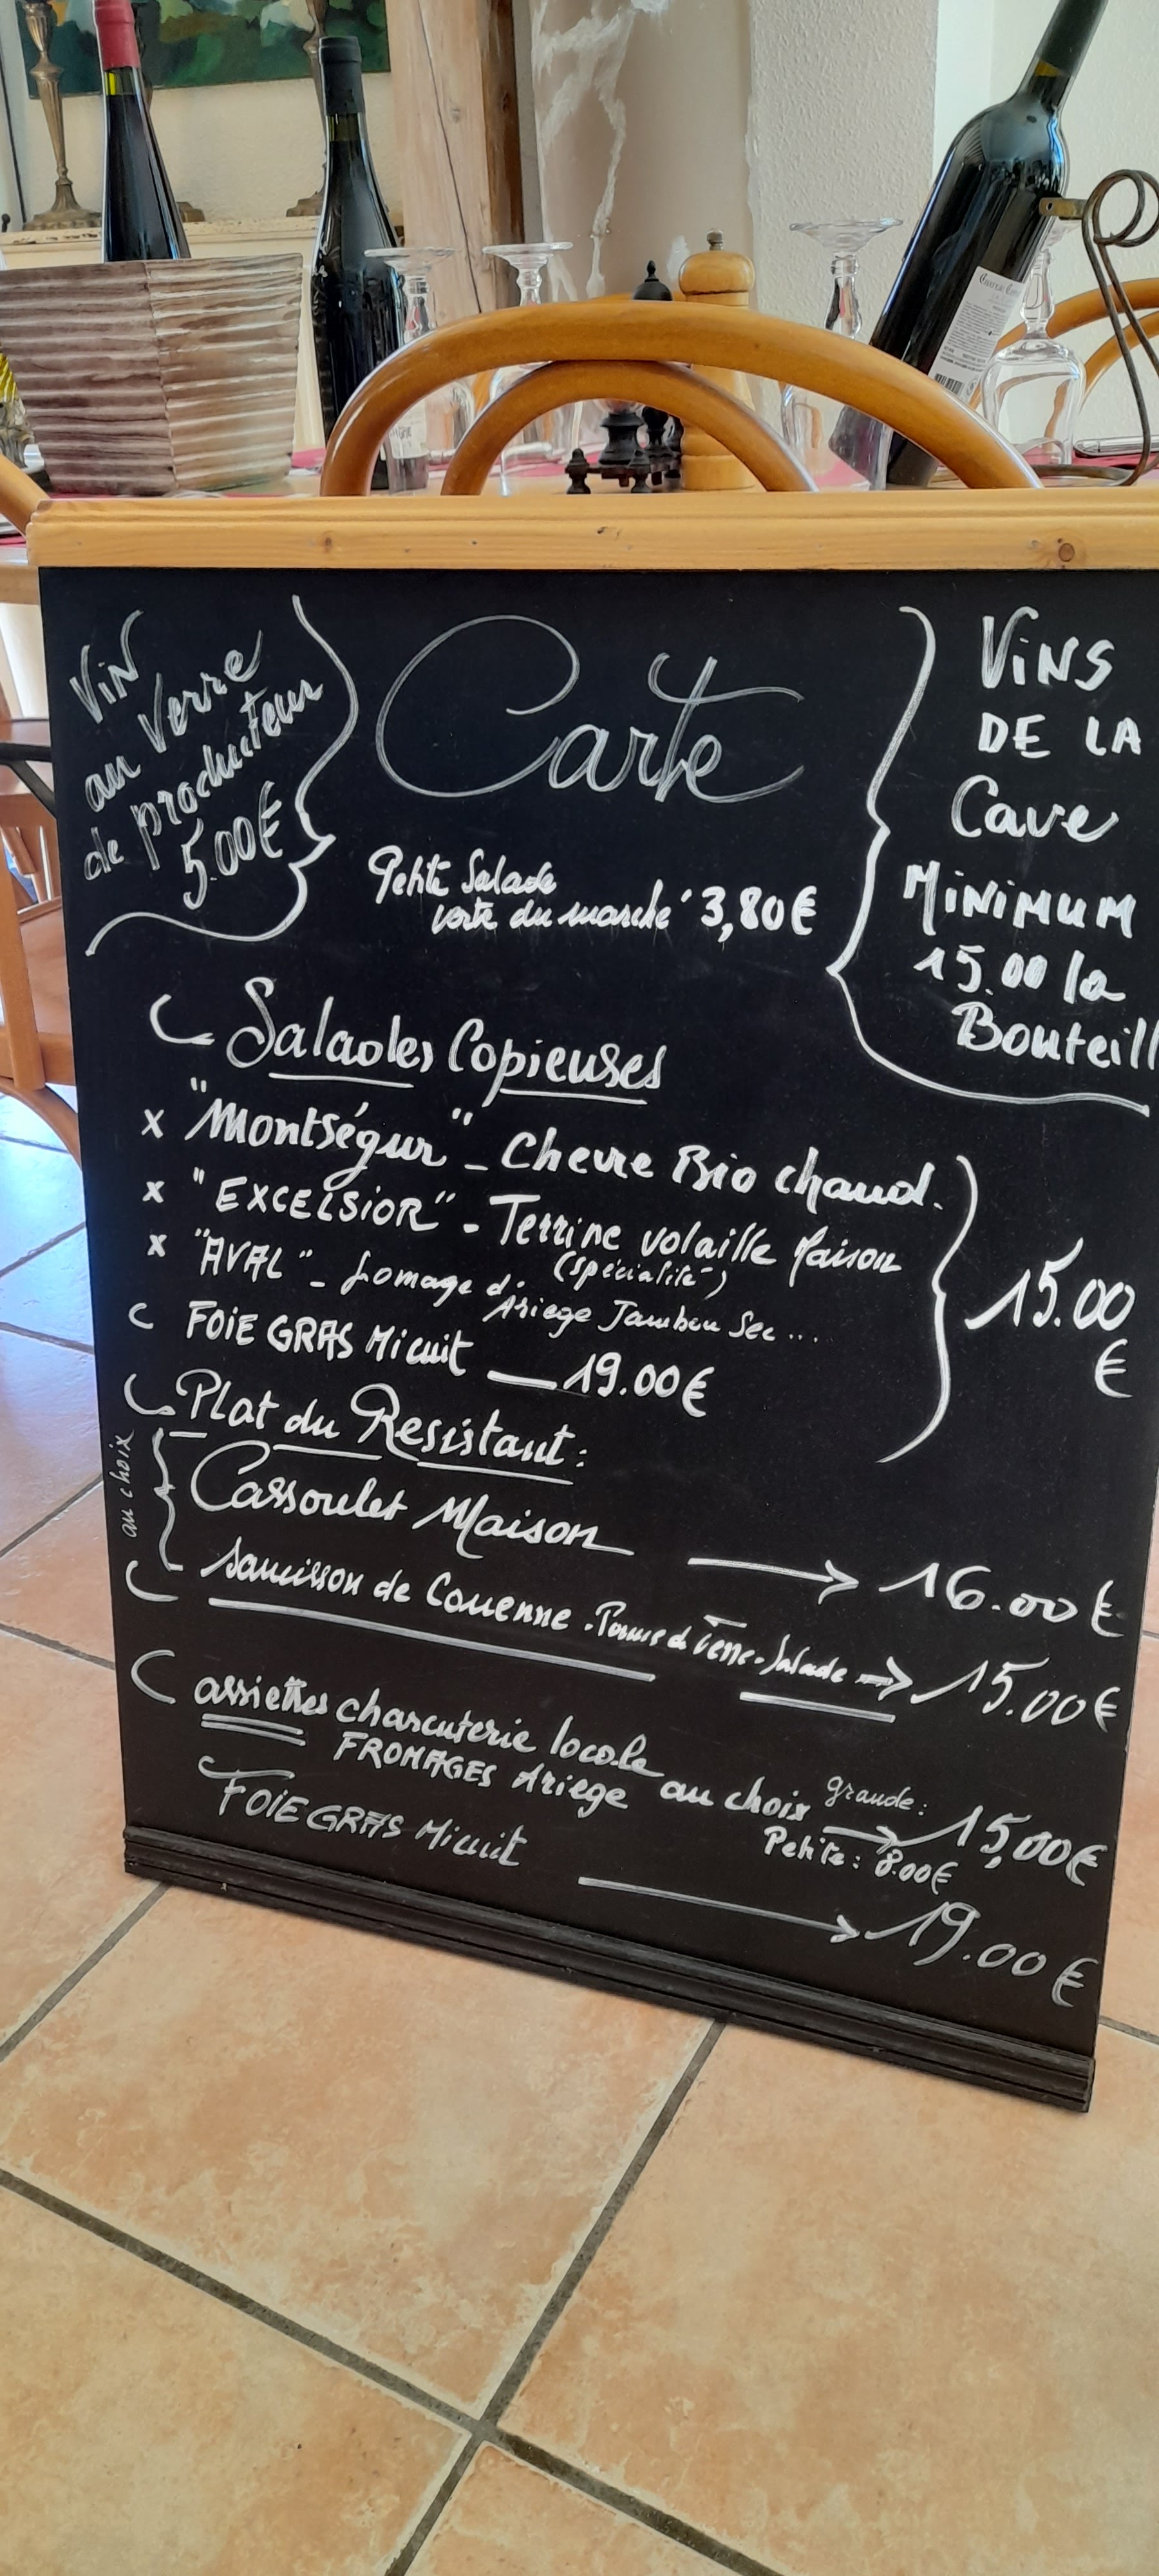 Vin
au Verre
de producteur
5.00€
Carte
Vins
DE LA
Cave
MiNiMUM
15.00 la
Bouteill
Petite Salade
verte du marché 3,80€
Salades Copieuses
x "Montségur" - Chevre Bio chaud.
x "EXCELSiOR" - Terrine volaille Maison
(spécialité)
x "AVAL" - fromage d'
Ariege Jambon Sec ...
15.00
€
FOiE GRAS Micuit — 19.00€
Plat du Resistant:
au choix
Cassoulet Maison → 16.00€
Saucisson de Couenne. Pomme de Terre - Salade → 15.00€
assiettes charcuterie locale
FROMAGES Ariege au choix grande: → 15,00€
Petite: 8.00€
FOiE GRAS Micuit → 19.00€